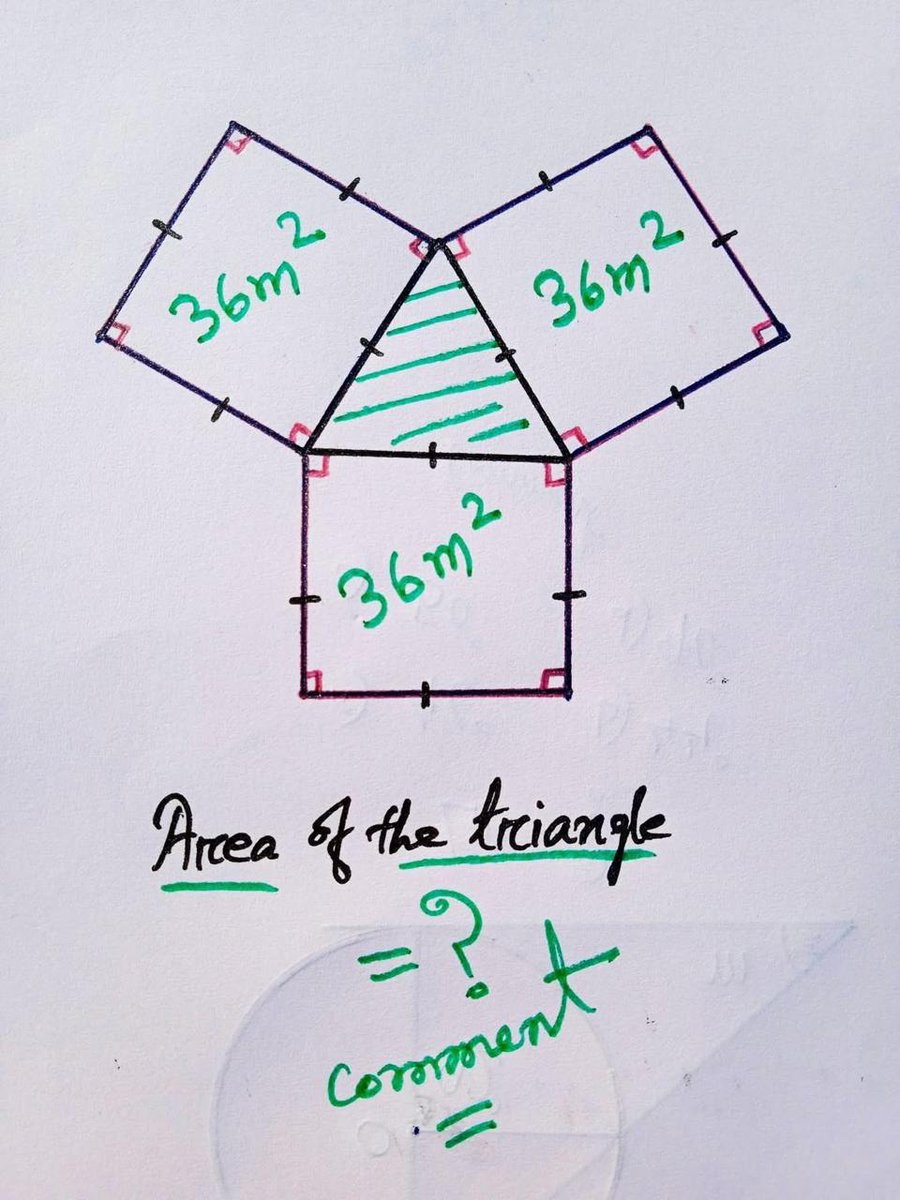 36m²
36m²
36m²
Area of the triangle
= ?
comment